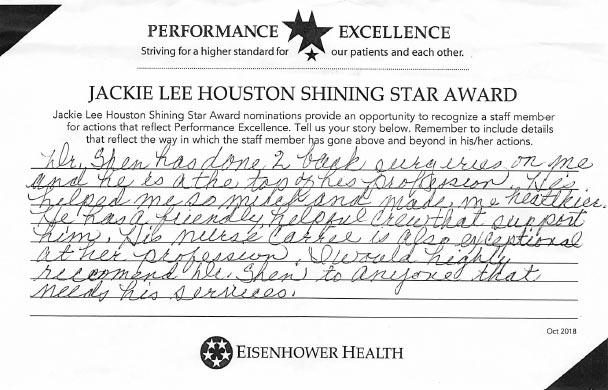 PERFORMANCE EXCELLENCE
Striving for a higher standard for our patients and each other.
JACKIE LEE HOUSTON SHINING STAR AWARD
Jackie Lee Houston Shining Star Award nominations provide an opportunity to recognize a staff member
for actions that reflect Performance Excellence. Tell us your story below. Remember to include details
that reflect the way in which the staff member has gone above and beyond in his/her actions.
Dr. Shen has done 2 back surguries on me
and he is a the top of his profession. He's
helped me so much and made me healthier.
He has a friendly, helpful crew that support
him. His nurse Carree is also exceptional
at her profession. I would highly
reccomend Dr. Shen to anyone that
needs his services.
Oct 2018
EISENHOWER HEALTH